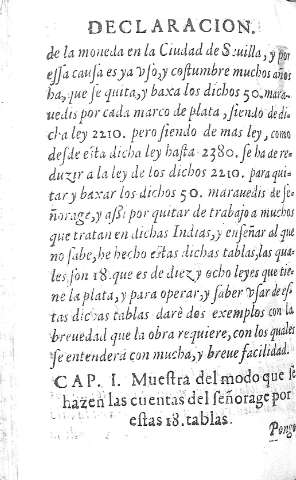 DECLARACION.
de la moneda en la Ciudad de Seuilla, y por
essa causa es ya vso, y costumbre muchos años
ha, que se quita, y baxa los dichos 50. mara-
uedis por cada marco de plata, siendo de di-
cha ley 2210. pero siendo de mas ley, como
desde esta dicha ley hasta 2380. se ha de re-
duzir a la ley de los dichos 2210. para qui-
tar y baxar los dichos 50. marauedis de se-
ñorage, y assi por quitar de trabajo a muchos
que tratan en dichas Indias, y enseñar al que
no sabe, he hecho estas dichas tablas, las qua-
les son 18. que es de diez y ocho leyes que tie-
ne la plata, y para operar, y saber vsar de es-
tas dichas tablas darè dos exemplos con la
breuedad que la obra requiere, con los quales
se entenderá con mucha, y breue facilidad.
CAP. I. Muestra del modo que se
hazen las cuentas del señorage por
estas 18. tablas.
Pongo